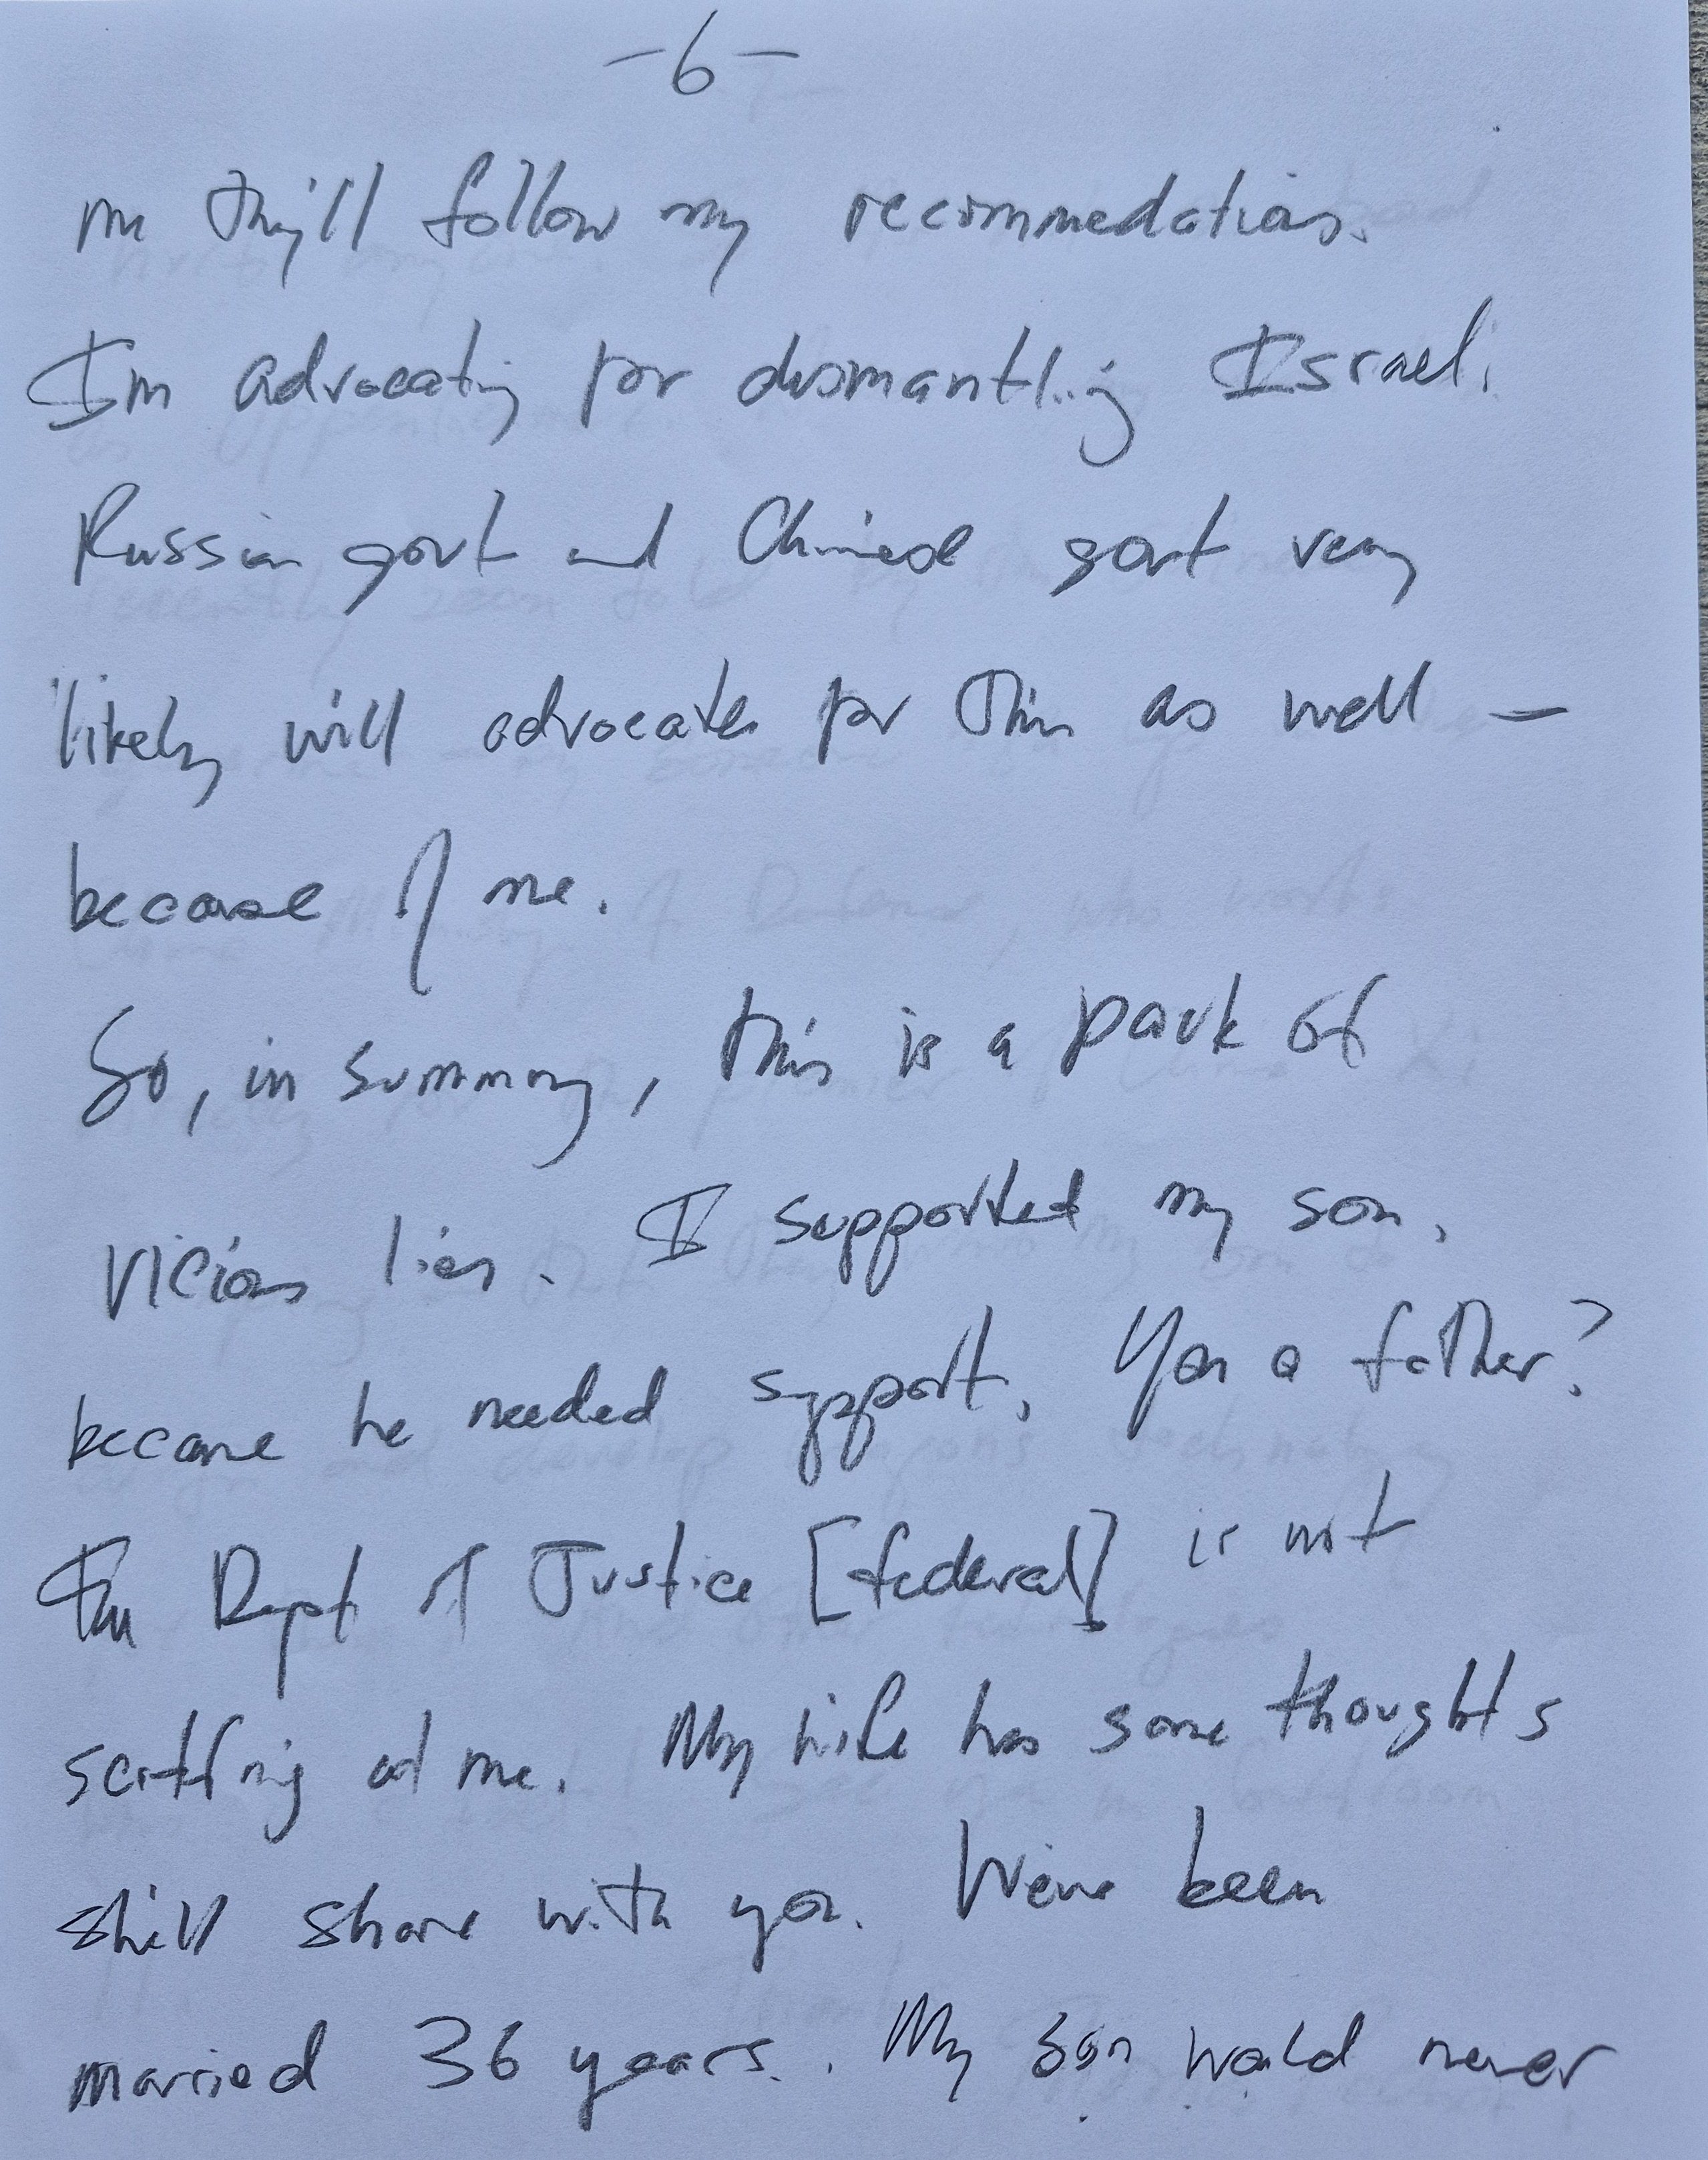 -6-
me they'll follow my recommedations.
I'm advocating for dismantling Israel.
Russian govt and Chinese govt very
likely will advocate for this as well —
because of me.
So, in summary, this is a pack of
vicious lies. I supported my son.
because he needed support. You a father?
The Dept of Justice [federal] is not
scoffing at me. My wife has some thoughts
she'll share with you. We've been
married 36 years. My son would never